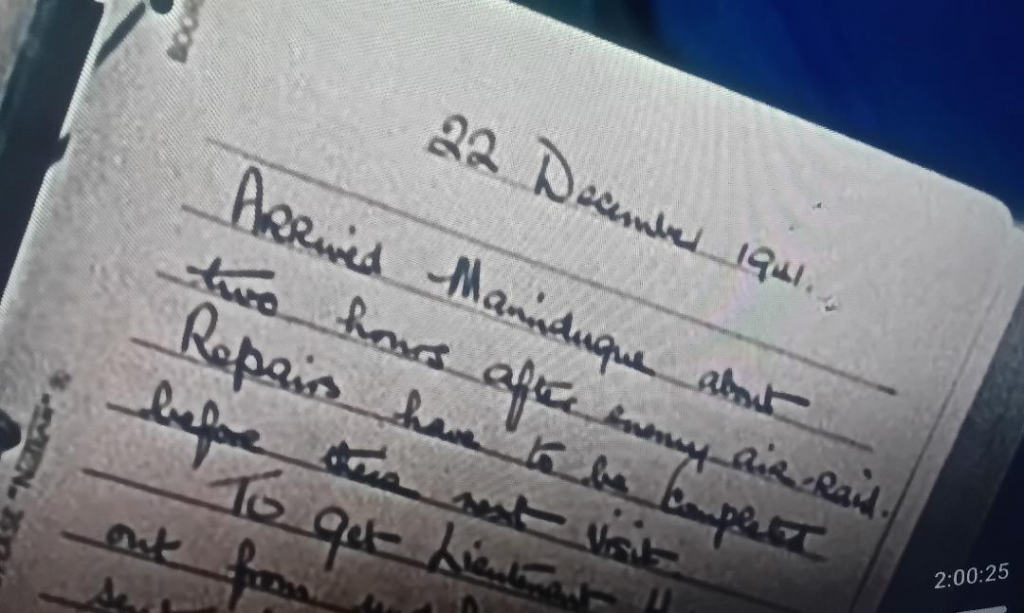 22 December 1941.
ARRived Marinduque about
two hours after enemy air-Raid.
Repairs have to be Completed
before their next visit.
To get Lieutenant
out from
2:00:25